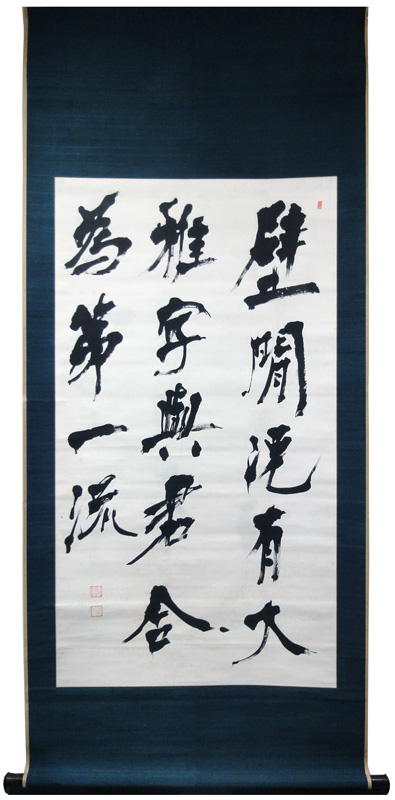 壁閒況有大
雅字與君合
為第一流